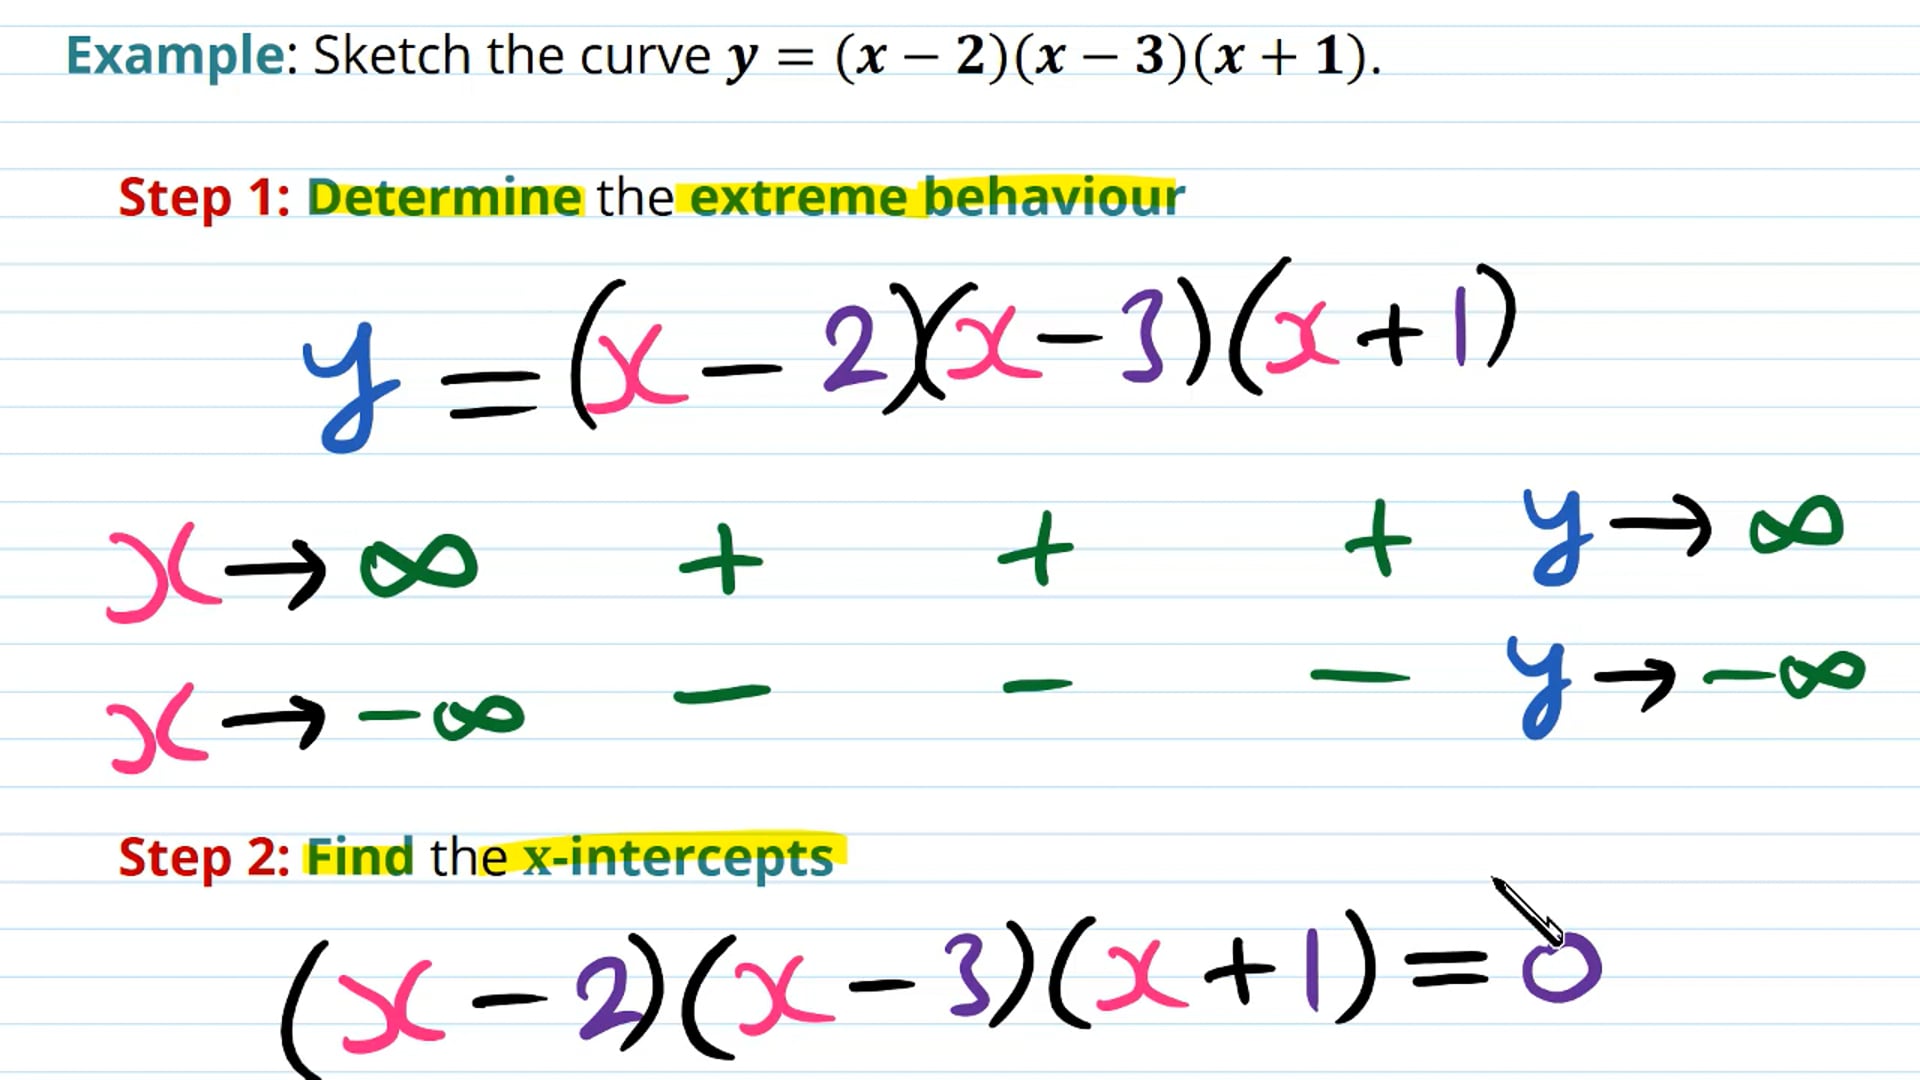 Example: Sketch the curve y = (x − 2)(x − 3)(x + 1).
Step 1: Determine the extreme behaviour
y = (x − 2)(x − 3)(x + 1)
x → ∞ + + + y → ∞
x → −∞ − − − y → −∞
Step 2: Find the x-intercepts
(x − 2)(x − 3)(x + 1) = 0